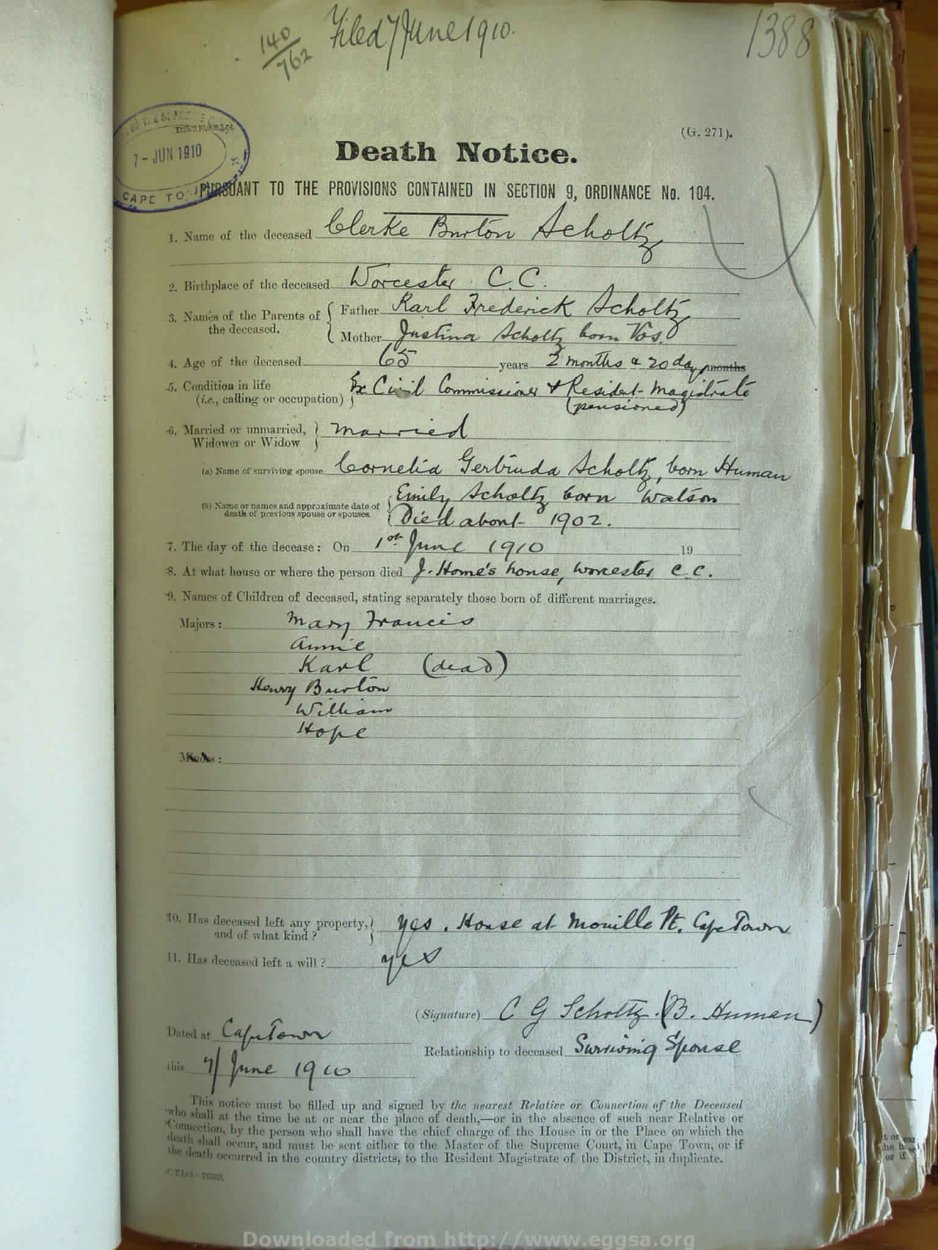 140/762 Filed 7 June 1910. 1388
7 - JUN 1910
CAPE TO
(G. 271).
Death Notice.
PURSUANT TO THE PROVISIONS CONTAINED IN SECTION 9, ORDINANCE No. 104.
1. Name of the deceased Clerke Burton Scholtz
2. Birthplace of the deceased Worcester C.C.
3. Names of the Parents of the deceased. { Father Karl Frederick Scholtz
Mother Justina Scholtz born Vos.
4. Age of the deceased 65 years 2 months & 20 days months
5. Condition in life (i.e., calling or occupation) } Ex Civil Commissioner & Resident Magistrate
(pensioned)
6. Married or unmarried, Widower or Widow } married
(a) Name of surviving spouse Cornelia Gerbruda Scholtz, born Human
(b) Name or names and approximate date of death of previous spouse or spouses. { Emily Scholtz born Watson
Died about 1902.
7. The day of the decease: On 1st June 1910 19
8. At what house or where the person died J. Home's house, Worcester C.C.
9. Names of Children of deceased, stating separately those born of different marriages.
Majors: Mary Francis
Annie
Karl (dead)
Henry Burton
William
Hope
Minors:
10. Has deceased left any property, and of what kind? } yes. House at Mouille Pt. Cape Town
11. Has deceased left a will? yes
(Signature) C G Scholtz (B. Human)
Dated at Cape Town
Relationship to deceased Surviving Spouse
this 7/ June 1910
This notice must be filled up and signed by the nearest Relative or Connection of the Deceased
who shall at the time be at or near the place of death,—or in the absence of such near Relative or
Connection, by the person who shall have the chief charge of the House in or the Place on which the
death shall occur, and must be sent either to the Master of the Supreme Court, in Cape Town, or if
the death occurred in the country districts, to the Resident Magistrate of the District, in duplicate.
Downloaded from http://www.eggsa.org